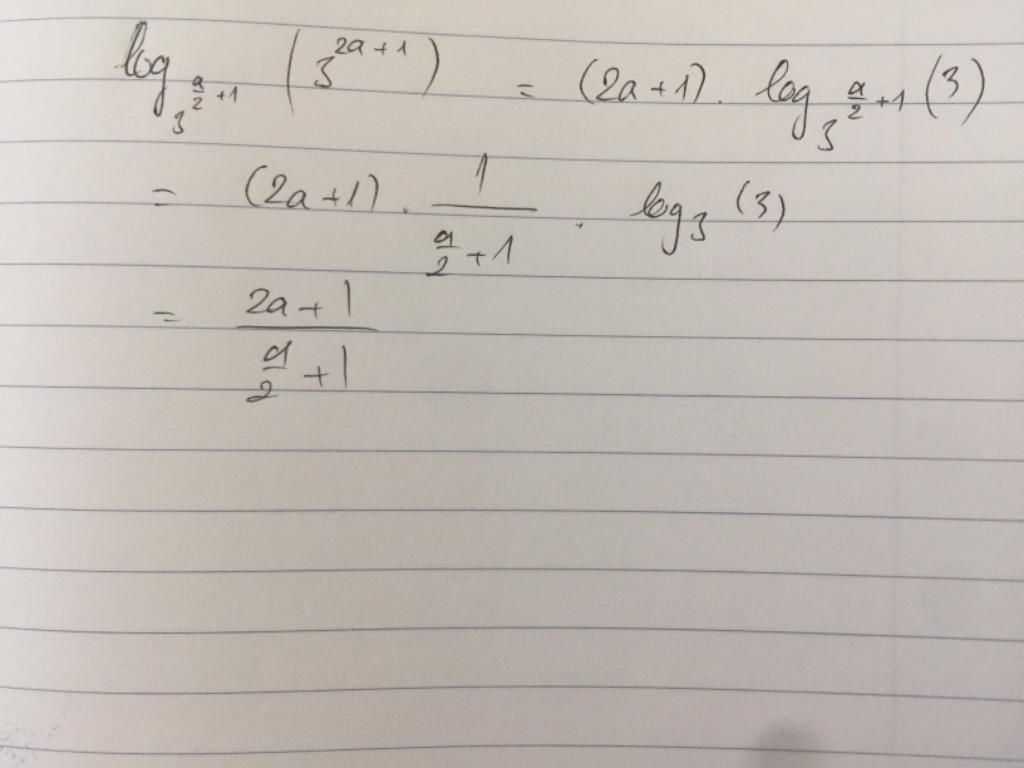 log_{3^{a/2 + 1}} (3^{2a+1}) = (2a+1) . log_{3^{a/2 + 1}} (3)
= (2a+1) . \frac{1}{\frac{a}{2} + 1} . log_3 (3)
= \frac{2a+1}{\frac{a}{2} + 1}